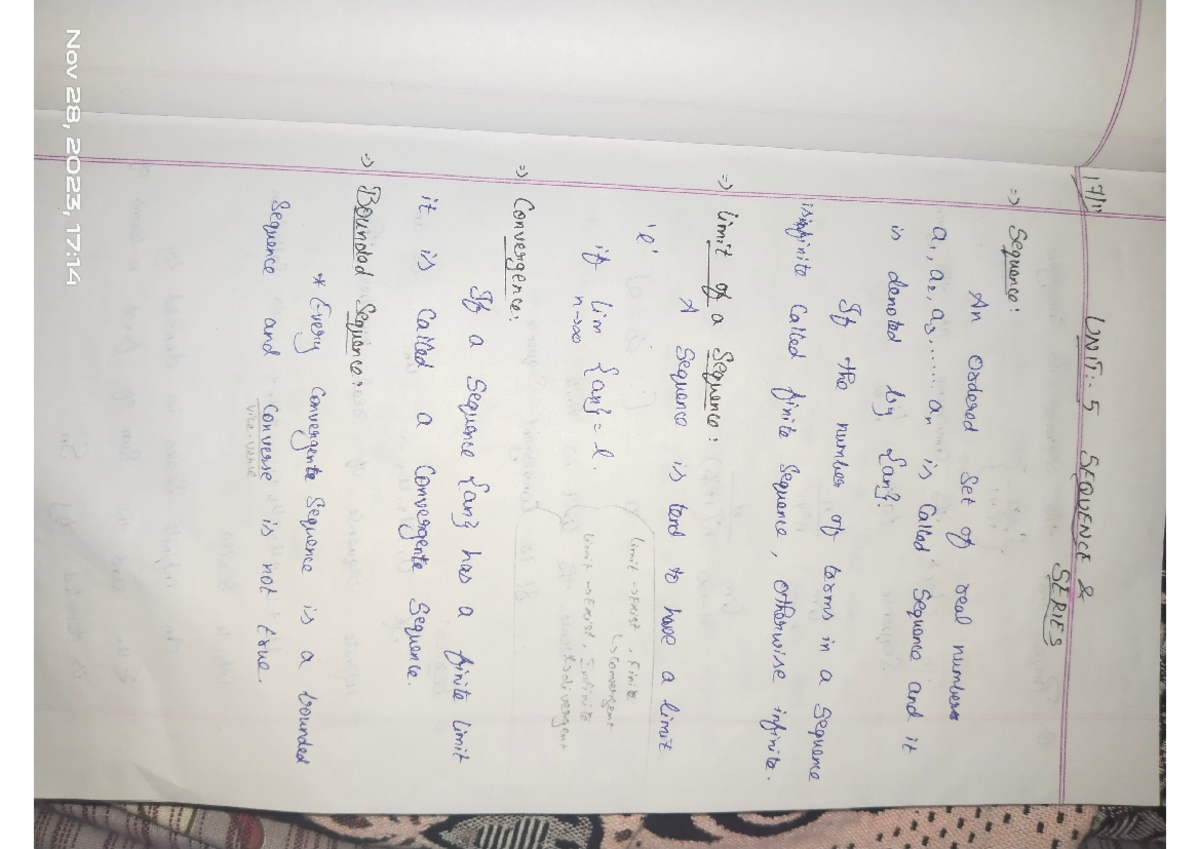 17/11
UNIT:- 5 SEQUENCE &
SERIES
=> Sequence:
An Ordered Set of real numbers
a1, a2, a3, ...... an is Called Sequence and it
is denoted by {an}.
If the number of terms in a Sequence
is finite Called finite Sequence, otherwise infinite.
=> limit of a Sequence:
A Sequence is tend to have a limit
'l'
if lim {an} = l.
n→∞
limit → Exist, Finite
↳ Convergent
limit → Exist, Infinite
↳ divergent
=> Convergence:
If a Sequence {an} has a finite limit
it is Called a Convergente Sequence.
=> Bounded Sequence:
* Every Convergente Sequence is a bounded
Sequence and Converse is not true.
vice-verse
Nov 28, 2023, 17:14